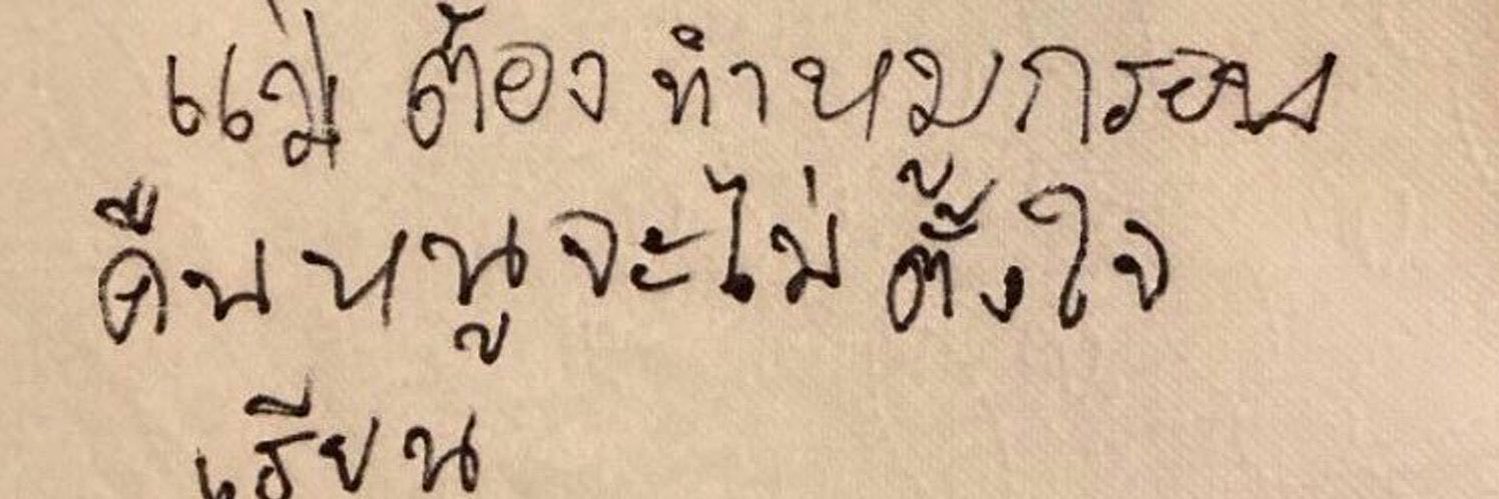 แม่ ต้อง ทำ หมูกรอบ
คืน หนู จะ ไม่ ตั้ง ใจ
เรียน